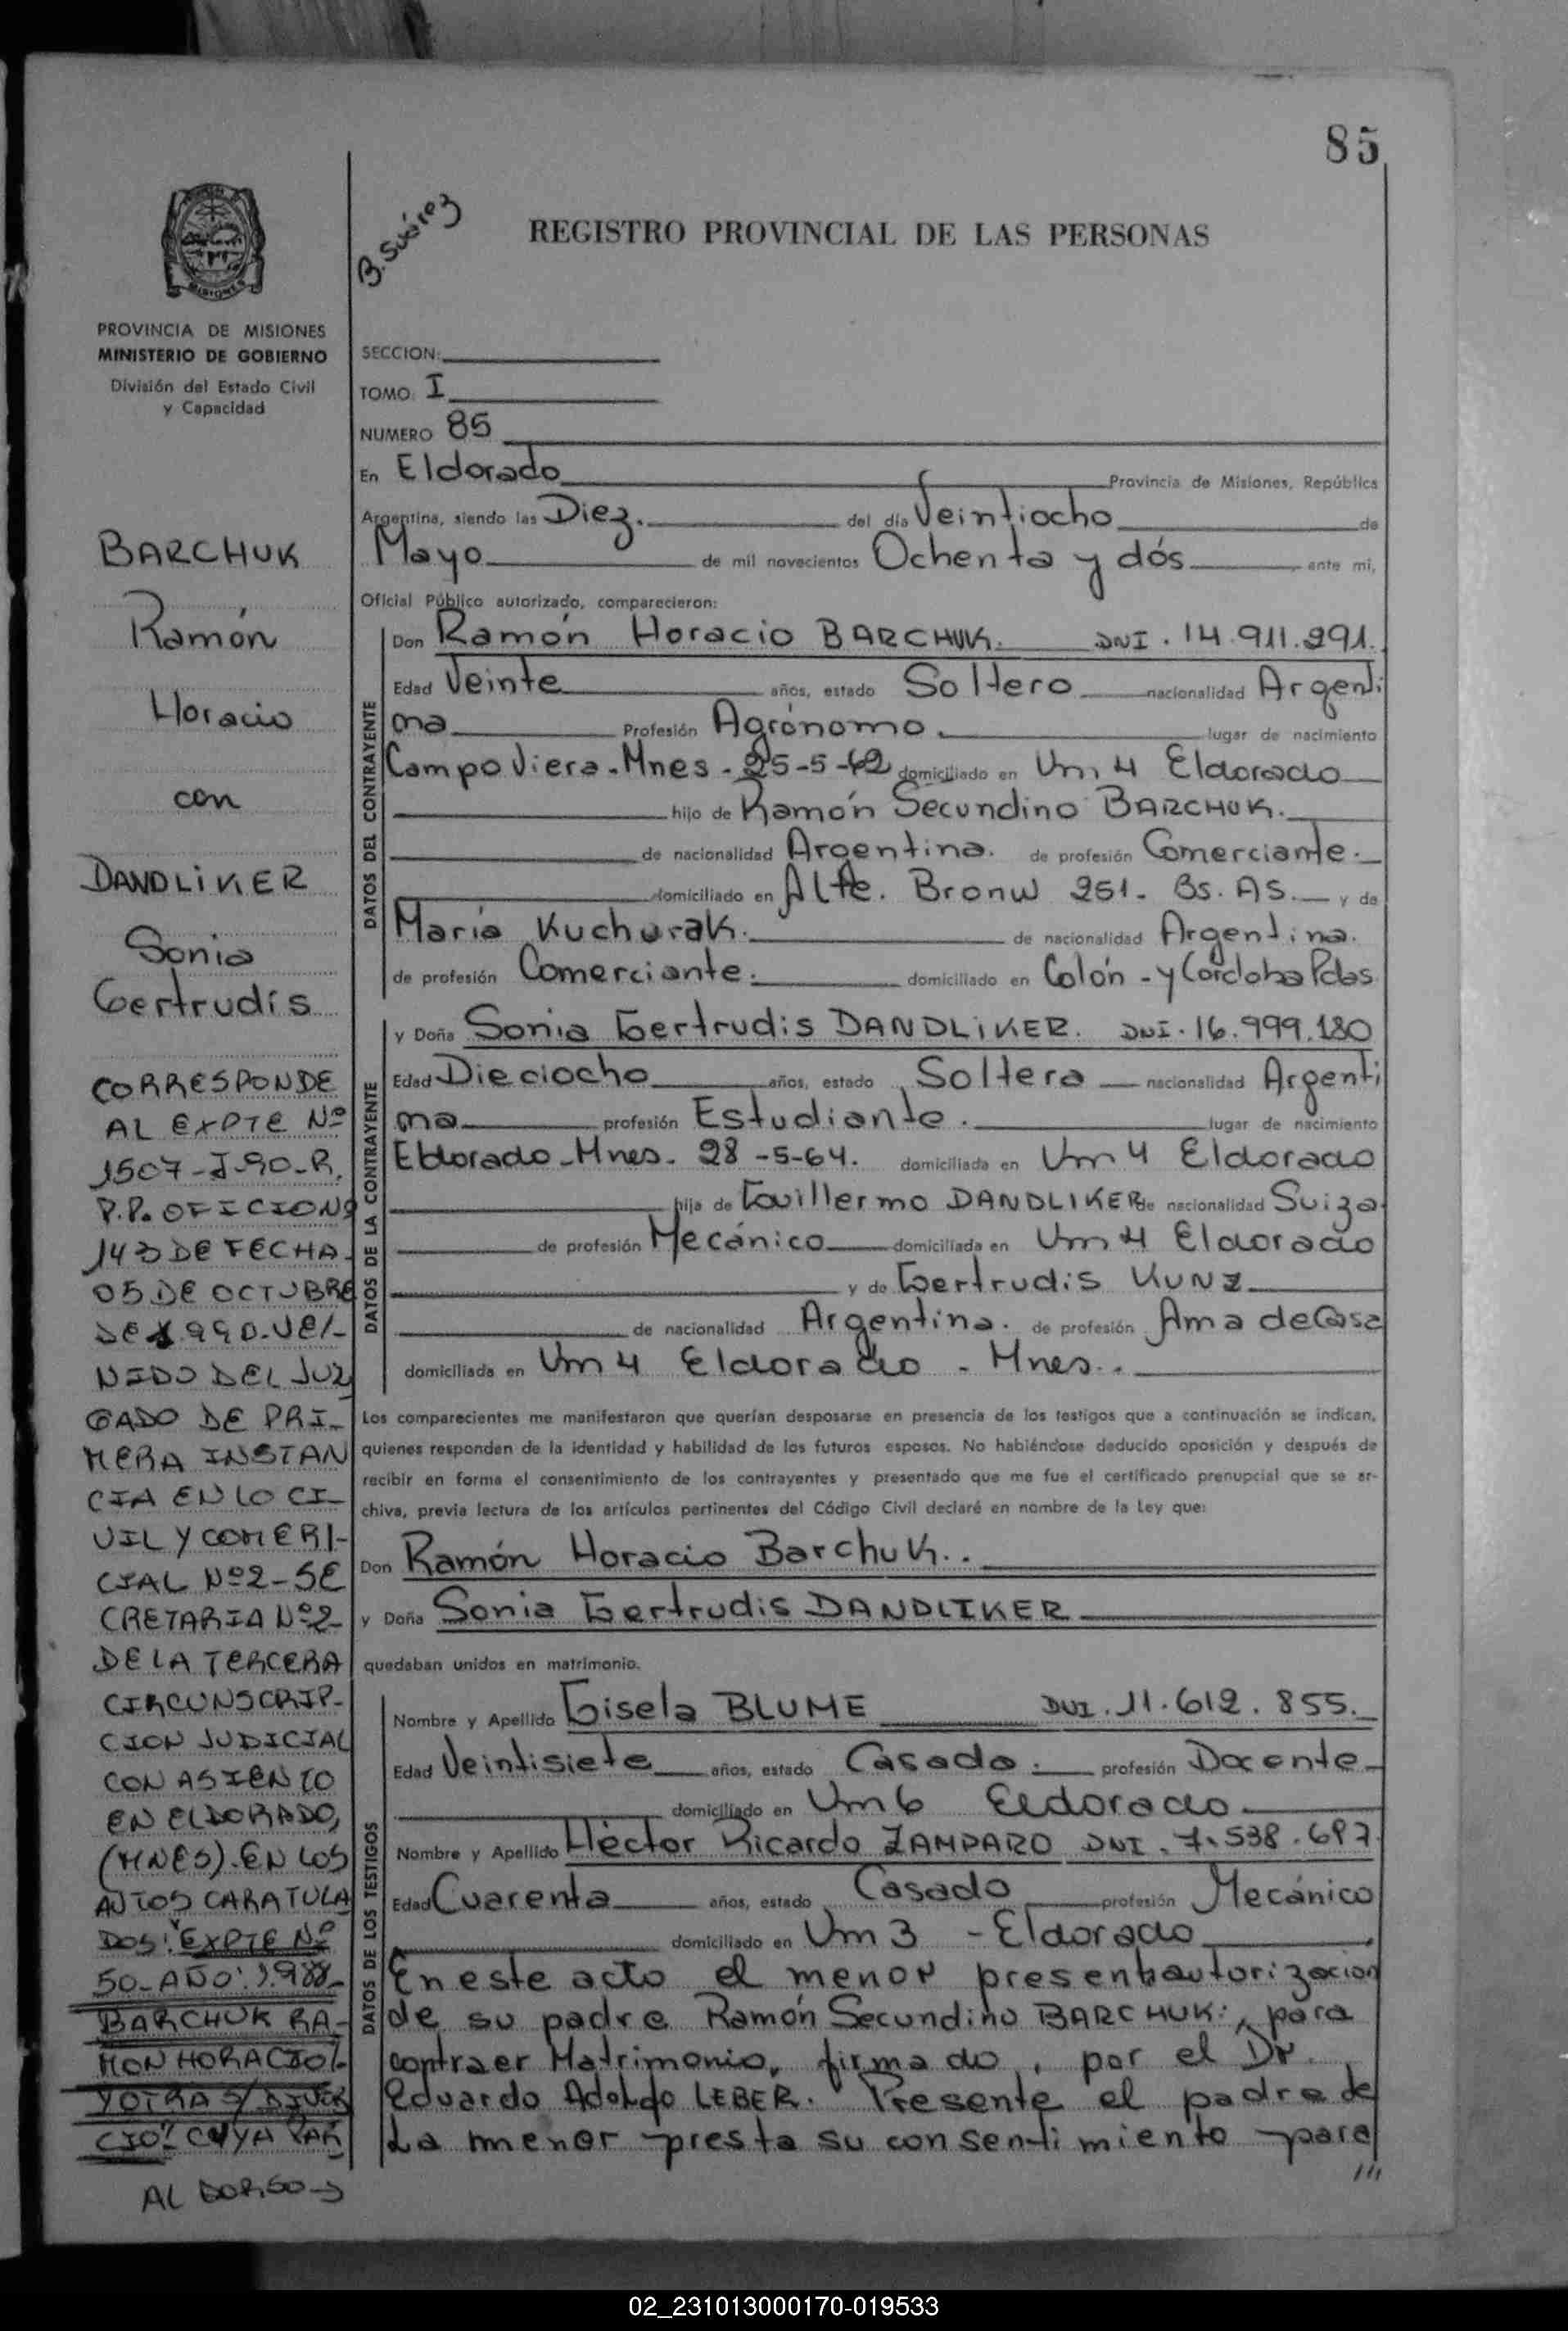 85
B. Suárez
REGISTRO PROVINCIAL DE LAS PERSONAS
MISIONES
PROVINCIA DE MISIONES
MINISTERIO DE GOBIERNO
División del Estado Civil
y Capacidad
BARCHUK
Ramón
Horacio
con
DANDLIKER
Sonia
Gertrudis
CORRESPONDE
AL EXPTE Nº
1507-J-90-R.
P.P. OFICIO Nº
143 DE FECHA
05 DE OCTUBRE
DE 1.990-VE/-
NIDO DEL JUZ
GADO DE PRI-
MERA INSTAN
CIA EN LO CI-
VIL Y COMERI-
CIAL Nº2-SE
CRETARIA Nº2-
DE LA TERCERA
CIRCUNSCRIP-
CION JUDICIAL
CON ASIENTO
EN ELDORADO,
(MNES).EN LOS
AUTOS CARATULA
DOS: "EXPTE Nº
50-AÑO: 1.988-
BARCHUK RA-
MON HORACIO/-
Y OTRA S/ DIVOR
CIO" CUYA PAR
AL DORSO →
SECCION:
TOMO: I
NUMERO 85
En Eldorado Provincia de Misiones, República
Argentina, siendo las Diez. del día Veintiocho de
Mayo de mil novecientos Ochenta y dós ante mi,
Oficial Público autorizado, comparecieron:
DATOS DEL CONTRAYENTE
Don Ramón Horacio BARCHUK. DNI. 14.911.291.
Edad Veinte años, estado Soltero nacionalidad Argenti
na Profesión Agrónomo. lugar de nacimiento
Campo Viera-Mnes-25-5-62 domiciliado en Km 4 Eldorado
hijo de Ramón Secundino BARCHUK.
de nacionalidad Argentina. de profesión Comerciante.
domiciliado en Alte. Bronw 251- Bs. AS. y de
María Kuchurak. de nacionalidad Argentina.
de profesión Comerciante. domiciliado en Colón-y Córdoba Pdas
DATOS DE LA CONTRAYENTE
y Doña Sonia Gertrudis DANDLIKER. DNI. 16.999.180
Edad Dieciocho años, estado Soltera nacionalidad Argenti
na profesión Estudiante. lugar de nacimiento
Eldorado-Mnes. 28-5-64. domiciliada en Km 4 Eldorado
hija de Guillermo DANDLIKER de nacionalidad Suiza
de profesión Mecánico domiciliada en Km 4 Eldorado
y de Gertrudis KUNZ
de nacionalidad Argentina. de profesión Ama de Casa
domiciliada en Km 4 Eldorado - Mnes..
Los comparecientes me manifestaron que querían desposarse en presencia de los testigos que a continuación se indican,
quienes responden de la identidad y habilidad de los futuros esposos. No habiéndose deducido oposición y después de
recibir en forma el consentimiento de los contrayentes y presentado que me fue el certificado prenupcial que se ar-
chiva, previa lectura de los artículos pertinentes del Código Civil declaré en nombre de la Ley que:
Don Ramón Horacio Barchuk..
y Doña Sonia Gertrudis DANDLIKER
quedaban unidos en matrimonio.
DATOS DE LOS TESTIGOS
Nombre y Apellido Gisela BLUME DNI. 11.612.855.
Edad Veintisiete años, estado Casada. profesión Docente
domiciliado en Km 6 Eldorado
Nombre y Apellido Héctor Ricardo ZAMPARO DNI. 7.538.697
Edad Cuarenta años, estado Casado profesión Mecánico
domiciliado en Km 3 - Eldorado
En este acto el menor presenta autorización
de su padre Ramón Secundino BARCHUK, para
contraer Matrimonio, firmado, por el Dr.
Eduardo Adolfo LEBER. Presente el padre de
La menor presta su consentimiento para
///
02_231013000170-019533